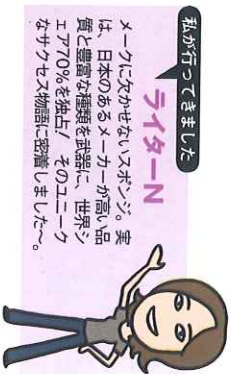 私が行ってきました
ライターN
メークに欠かせないスポンジ。実
は、日本のあるメーカーが高い品
質と豊富な種類を武器に、世界シ
ェア70％を独占！ そのユニーク
なサクセス物語に密着しました〜。